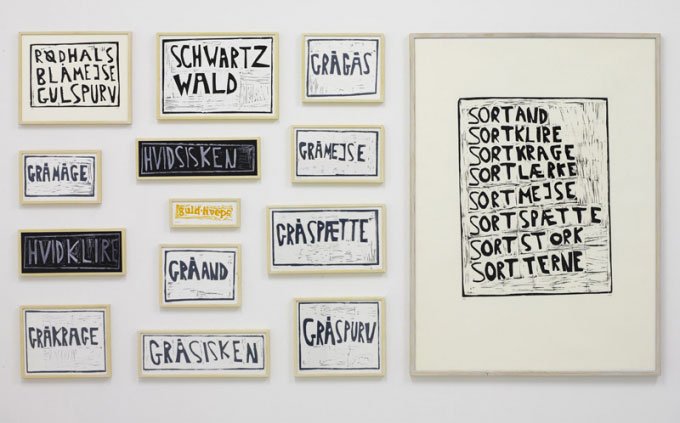 RØDHALS
BLÅMEJSE
GULSPURV
SCHWARTZ
WALD
GRÅGÅS
GRÅMÅGE
HVIDSISKEN
GRÅMEJSE
guld-hveps
HVIDKLIRE
GRÅAND
GRÅSPÆTTE
GRÅKRAGE
GRÅSISKEN
GRÅSPURV
SORTAND
SORTKLIRE
SORTKRAGE
SORTLÆRKE
SORTMEJSE
SORTSPÆTTE
SORTSTORK
SORTTERNE